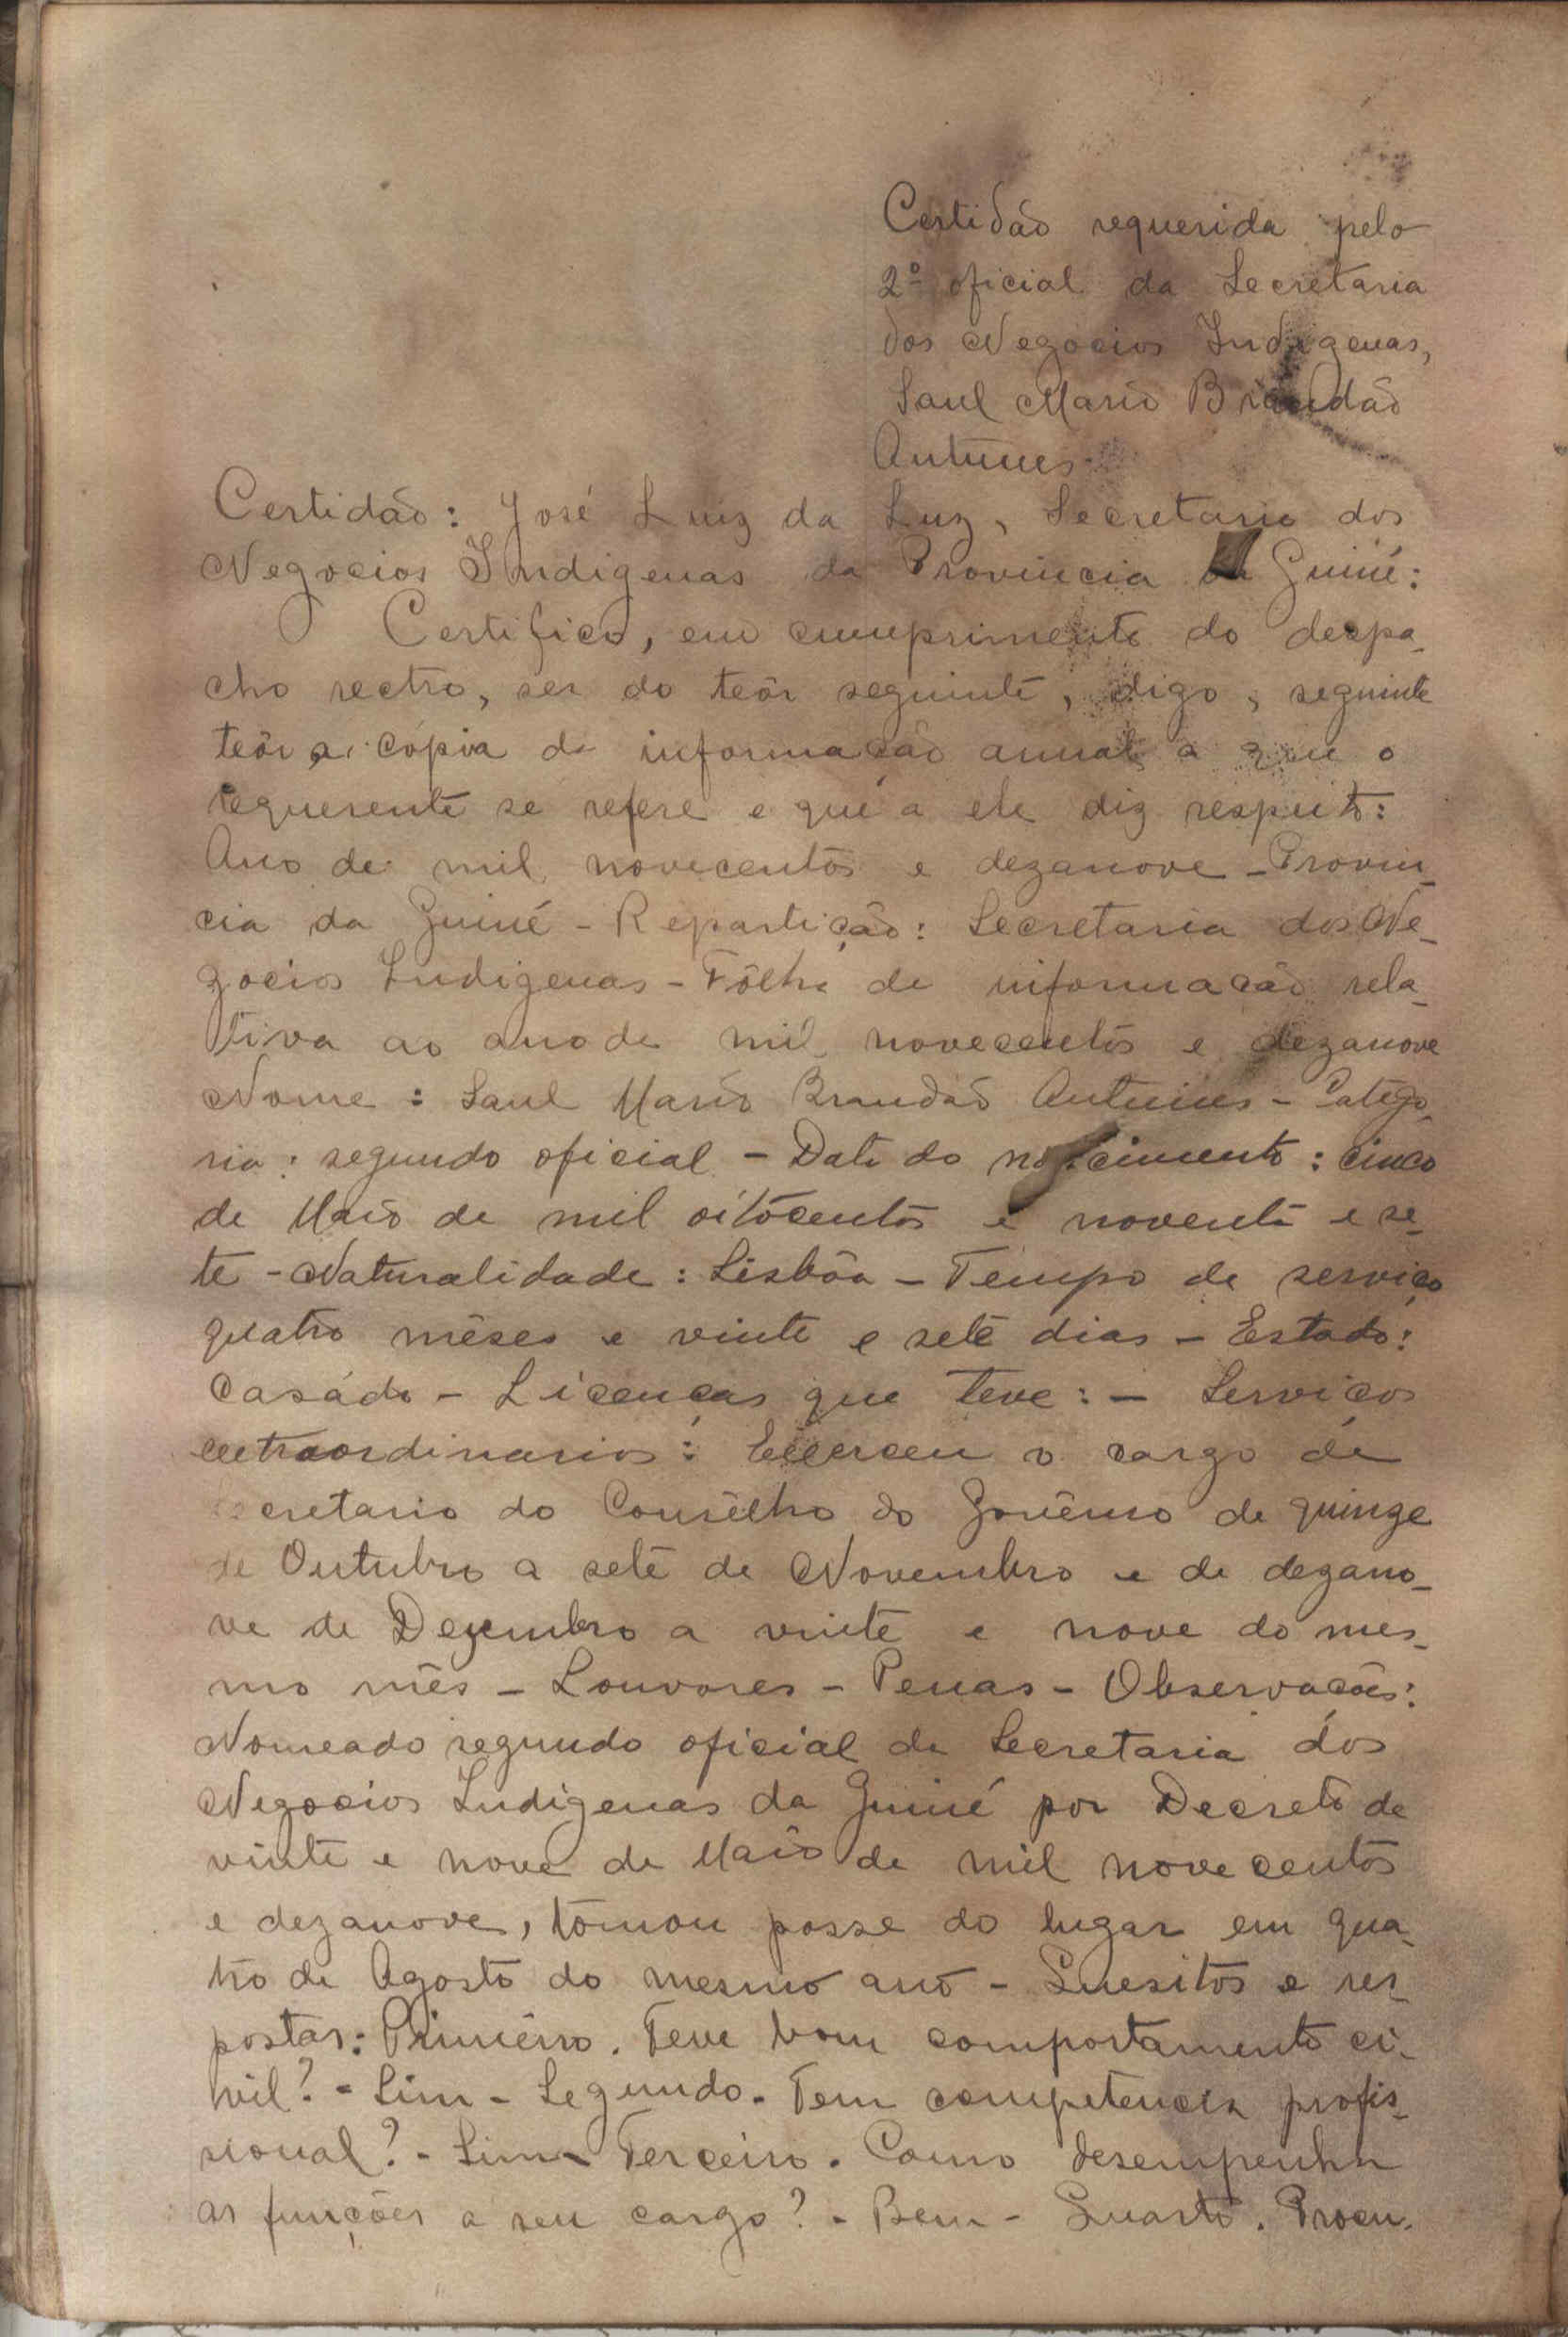 Certidão requerida pelo
2º oficial da Secretaria
dos Negocios Indigenas,
Saul Mario Brandão
Antunes.
Certidão: José Luiz da Luz, Secretario dos
Negocios Indigenas da Provincia da Guiné:
Certifico, em cumprimento do despa-
cho rectro, ser do teôr seguinte, digo, seguinte
teôr a cópia da informação anual a que o
requerente se refere e que a ele diz respeito:
Ano de mil novecentos e dezanove - Provin-
cia da Guiné - Repartição: Secretaria dos Ne-
gocios Indigenas - Fôlha de informação rela-
tiva ao ano de mil novecentos e dezanove
Nome: Saul Mario Brandão Antunes - Catego-
ria: segundo oficial - Data do nascimento: cinco
de Maio de mil oitocentos e noventa e se-
te - Naturalidade: Lisbôa - Tempo de serviço
quatro mêses e vinte e sete dias - Estado:
Casádo - Licenças que teve: - Serviços
extraordinarios: Exerceu o cargo de
Secretario do Consêlho do Govêrno de quinze
de Outubro a sete de Novembro e de dezano-
ve de Dezembro a vinte e nove do mes-
mo mês - Louvores - Penas - Observações:
Nomeado segundo oficial da Secretaria dos
Negocios Indigenas da Guiné por Decreto de
vinte e nove de Maio de mil novecentos
e dezanove, tomou posse do lugar em qua-
tro de Agosto do mesmo ano - Quesitos e res-
postas: Primeiro. Teve bom comportamento ci-
vil? - Sim - Segundo. Tem competencia profis-
sional? - Sim - Terceiro. Como desempenha
as funções a seu cargo? - Bem - Quarto. Procu-